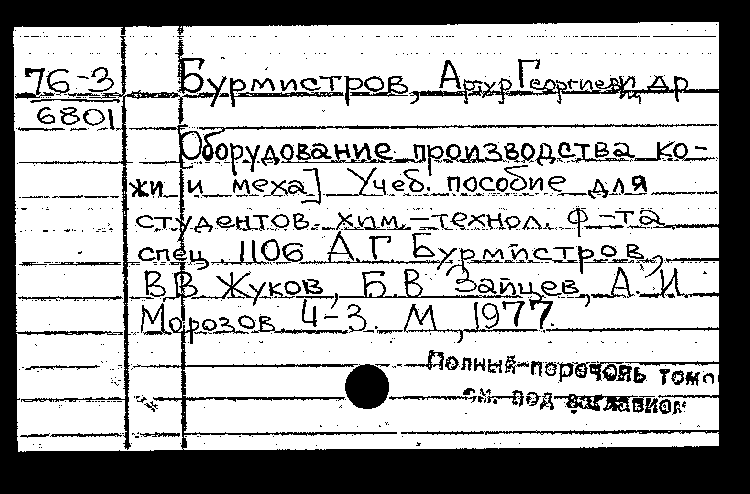 76-3
6801
Бурмистров, Артур Георгиеви др
[Оборудование производства ко-
жи и меха] Учеб. пособие для
студентов хим.-технол. ф-та
спец 1106 А Г Бурмистров,
В.В Жуков, Б.В Зайцев, А. И
Морозов. Ч-3. М, 1977.
Полный перечень томо
см. под заглавием